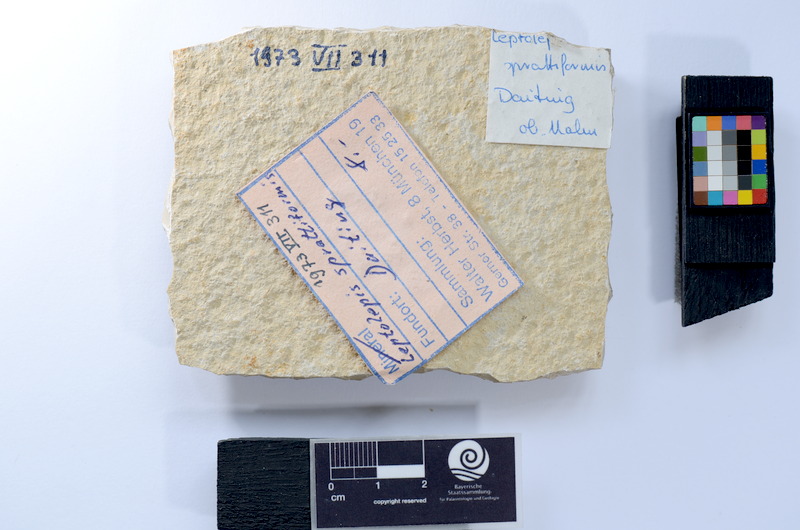 1973 VII 311
Leptolep
sprattiformis
Daiting
ob. Malm
Sammlung:
Walter Herbst, 8 München 19
Gerner Str. 38 - Telefon 15 25 33
Fundort: Daiting 8,-
Mineral
Leptolepis sprattiformis
1973 VII 311
0 1 2
cm
copyright reserved
Bayerische
Staatssammlung
für Paläontologie und Geologie